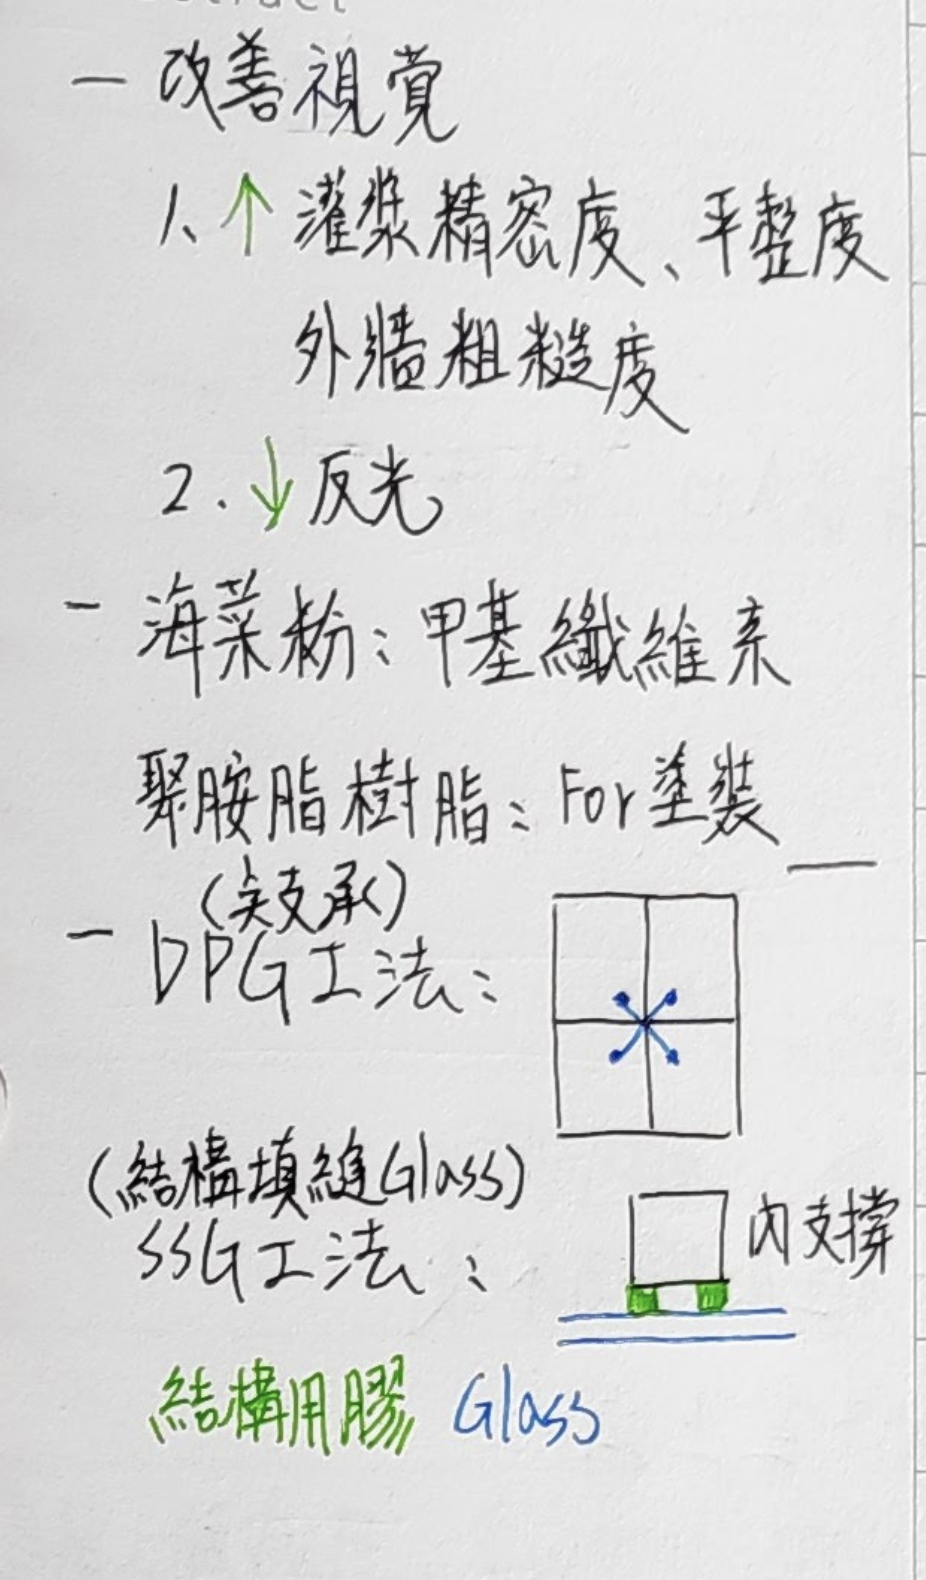 一 改善視覺
1、↑ 灌漿精密度、平整度
外牆粗糙度
2. ↓ 反光
- 海菜粉：甲基纖維素
聚胺脂樹脂：For塗裝
(尖支承)
- DPG工法：
(結構填縫Glass)
SSG工法：
內支撐
結構用膠 Glass